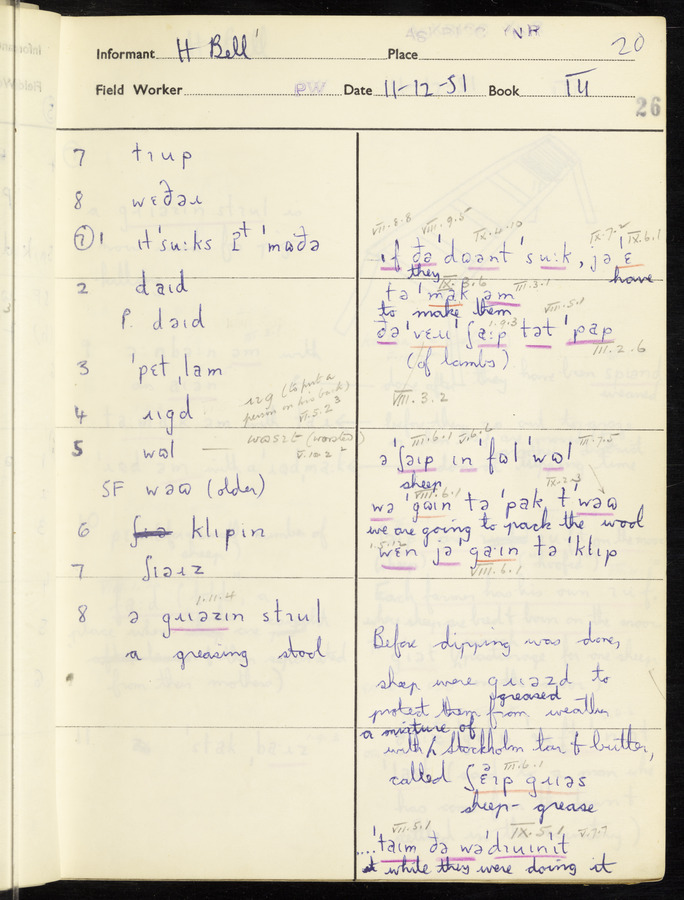 20
Informant H Bell Place
Field Worker PW Date 11-12-51 Book III
26
7 tɹup
8 wɛðəɹ
⑦ 1 ɪt 'su:ks ɪt 'mʊðə
2 daɪd
P. dəɪd
3 'pɛt ˌlam
4 ɹɪgd
ɹɪg (to put a
person on his back)
VI.5.2³
5 wʊl
wʊsɪt (worsted)
V.10.2²
SF wəʊ (older)
6 klɪpɪn
7 ʃɪəɹz
1.11.4
8 ə gɹɪəzɪn stɹul
a greasing stool
VII.8.8 VIII.9.5 IX.4.10 IX.7.2 IX.6.1
ɪf ðə 'dʊənt 'su:k, jə 'ɛ
they have
IX.3.6 III.3.1
tə 'mak əm
to make them VIII.5.1
1.9.3
ðə 'vɛɹɪ ʃa:p tət 'pap
III.2.6
(of lambs)
VIII.3.2
III.6.1 V.6.6 III.7.5
ə 'ʃaɪp ɪn 'fʊl 'wʊl
sheep IX.2.3
VIII.6.1
wə 'gʊɪn tə 'pak t 'wəʊ
we are going to pack the wool
wɛn jə 'ga·ɪn tə 'klɪp
VIII.6.1
Before dipping was done,
sheep were gɹɪəzd to
greased
protect them from weather
a mixture of
with Stockholm tar & butter,
III.6.1
called ʃɛɪp gɹɪəs
sheep-grease
VII.5.1 IX.5.1 V.7.7
....'taɪm ðə wə 'dɹuɪnɪt
while they were doing it